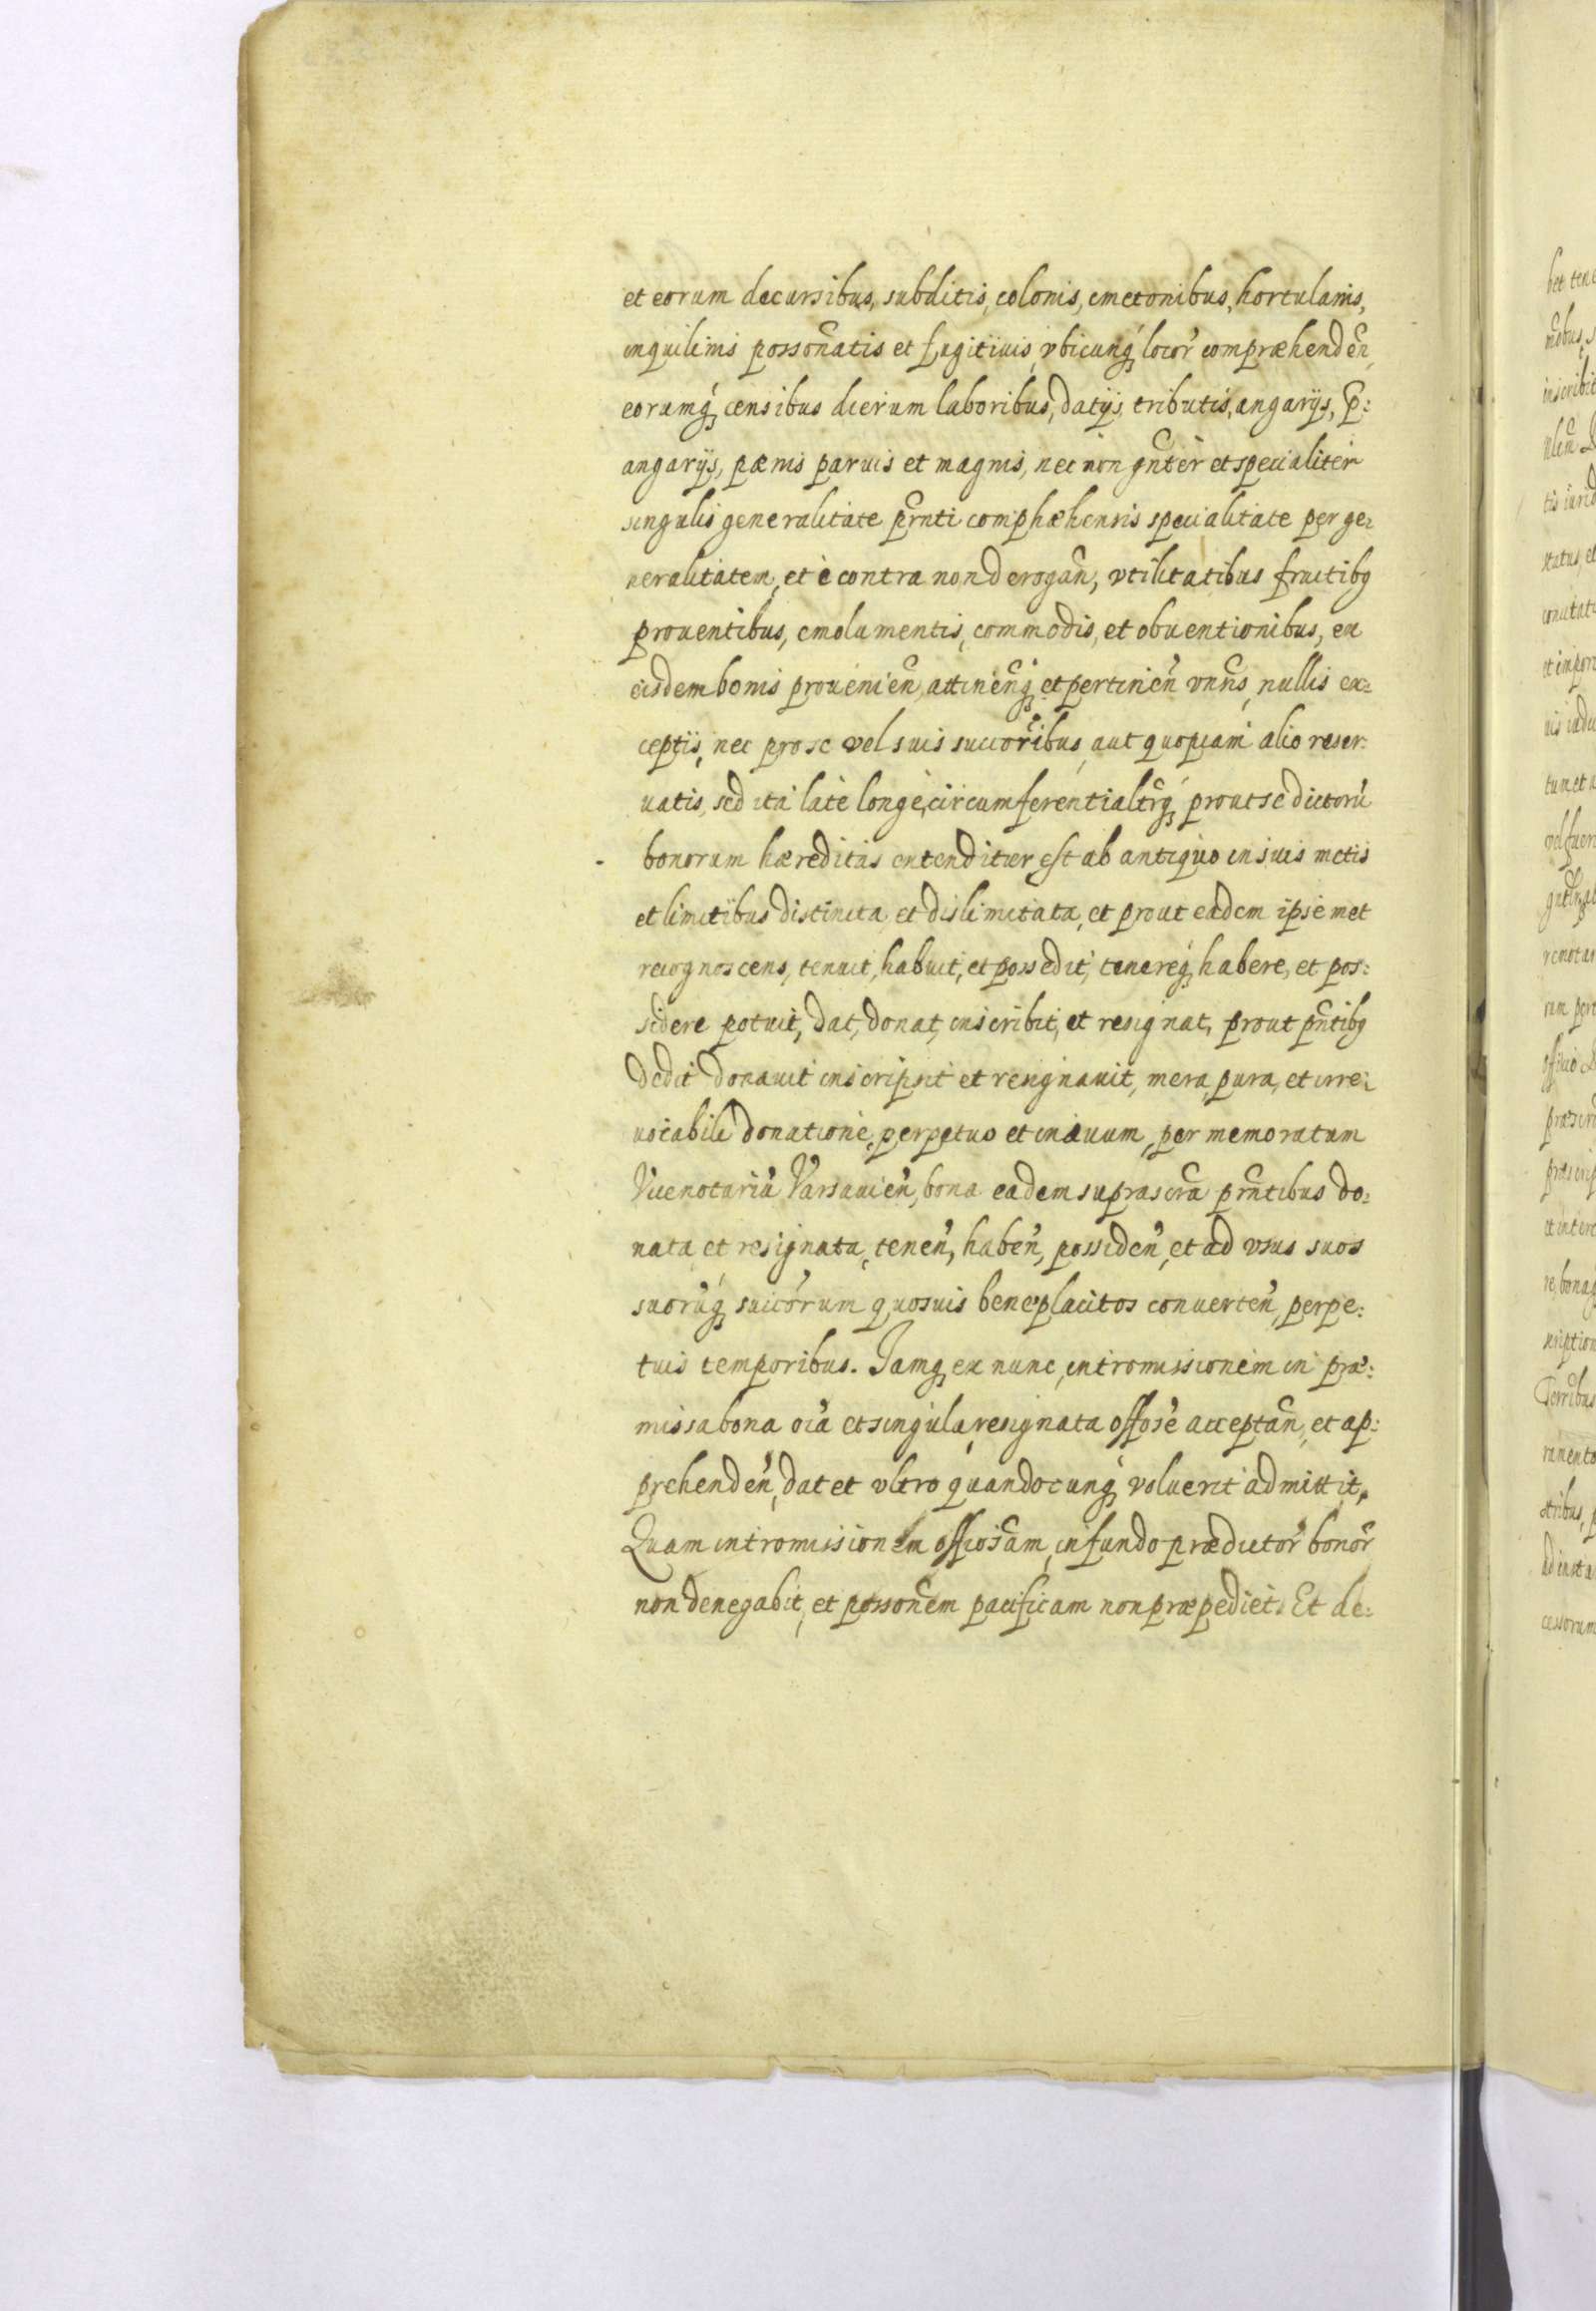 et eorum decursibus, subditis, colonis, cmetonibus, hortulanis,
inquilinis possonatis et fugitiuis, vbicunq locor compræhenden
eorumq censibus dierum laboribus, datijs, tributis, angarijs, p:
angarijs, pænis paruis et magnis, nec non gnter et specialiter
singulis generalitate prnti comphæhensis specialitate per ge:
neralitatem, et è contra non derogan, vtilitatibus fructibq
prouentibus, emolumentis, commodis, et obuentionibus, ex
eisdem bonis prouenien, attinenq et pertinen vnns, nullis ex:
ceptis, nec pro se vel suis succoribus, aut quopiam alio reser:
uatis, sed ita latè longè, circumferentialtrq prout se dictorū
bonorum hæreditas extenditur, est ab antiquo in suis metis
et limitibus distincta et dislimitata, et prout eadem ipsemet
recognoscens, tenuit, habuit, et possedit, tenereq habere, et pos:
sidere potuit, dat, donat, inscribit, et resignat, prout pntibq
dedit donauit inscripsit et resignauit, mera, pura, et irre:
uocabili donatione, perpetuo et in æuum, per memoratum
Vicenotariū Varsauien, bona eadem suprascra prntibus do:
nata et resignata, tenen, haben, possiden, et ad vsus suos
suorūq succorum quosuis beneplacitos conuerten, perpe:
tuis temporibus. Iamq ex nunc, intromissionem in præ:
missa bona oia et singula, resignata offose acceptan, et ap:
prehenden, dat et vltro quandocunq voluerit admittit,
Quam intromissionem officiosam, in fundo prædictor bonor
non denegabit, et possonem pacificam non præpediet. Et de: